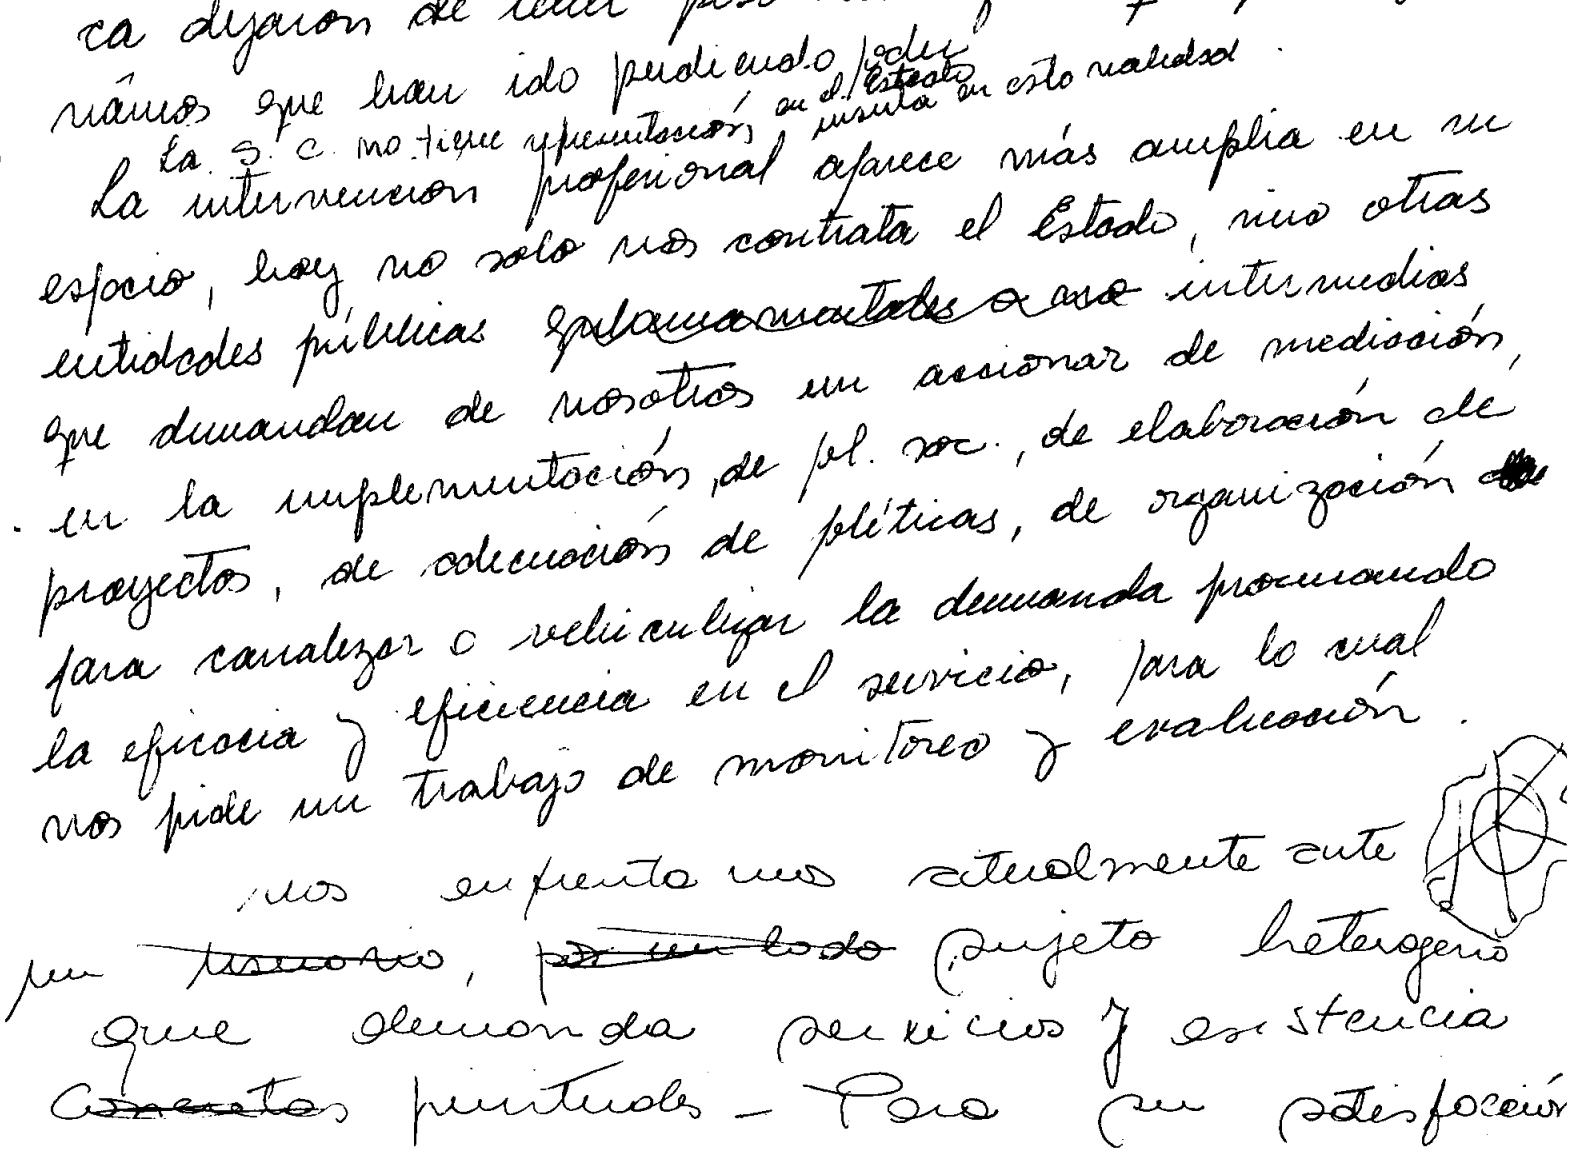 ca dejaron de tener
námos que han ido perdiendo poder
La S. C. no tiene representación en el Estado inserta en esta realidad.
La intervención profesional aparece más amplia en su
espacio, hoy no solo nos contrata el Estado, sino otras
entidades públicas gubernamentales o aso intermedias
que demandan de nosotros un accionar de mediación,
en la implementación, de pl. soc., de elaboración de
proyectos, de adecuación de pléticas, de organización
para canalizar o vehiculizar la demanda procurando
la eficacia y eficiencia en el servicio, para lo cual
nos pide un trabajo de monitoreo y evaluación.
nos enfrentamos actualmente ante
un usuario, por un lado sujeto heterogenio
que demanda servicios y asistencia
Concretos puntuales - Para su satisfacción